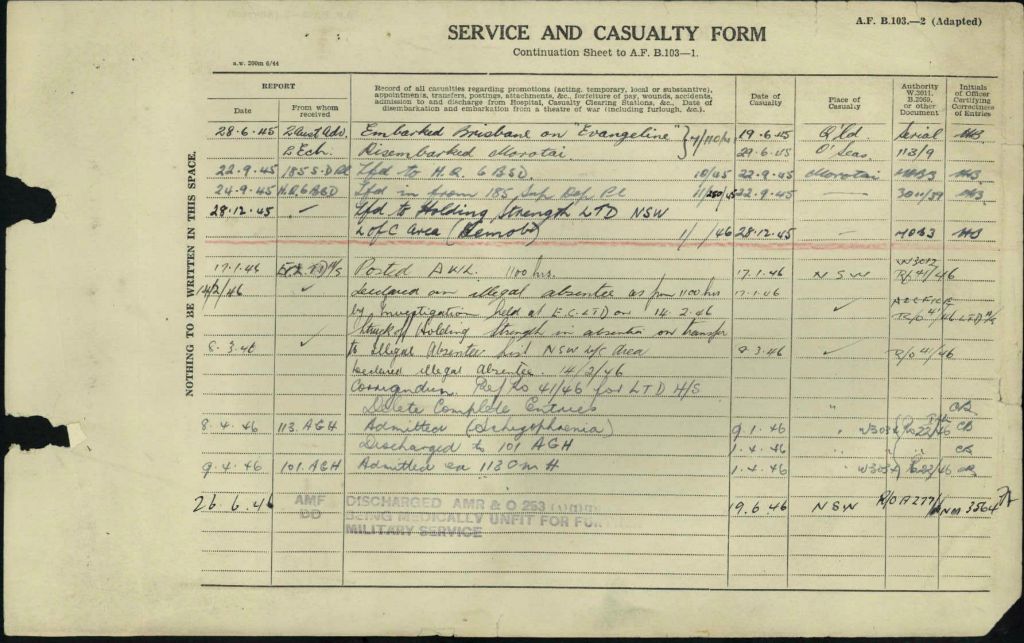 A.F. B.103.—2 (Adapted)
SERVICE AND CASUALTY FORM
Continuation Sheet to A.F. B.103—1.
a.w. 200m 6/44
NOTHING TO BE WRITTEN IN THIS SPACE.
REPORT
Date
From whom received
Record of all casualties regarding promotions (acting, temporary, local or substantive), appointments, transfers, postings, attachments, &c., forfeiture of pay, wounds, accidents, admission to and discharge from Hospital, Casualty Clearing Stations, &c. Date of disembarkation and embarkation from a theatre of war (including furlough, &c.).
Date of Casualty
Place of Casualty
Authority W.3011, B.2069, or other Document
Initials of Officer Certifying Correctness of Entries
28.6.45 2 Aust Adv. Embarked Brisbane on "Evangeline" 19.6.45 Q'ld Serial
2 Ech. Disembarked Morotai 29.6.45 O'Seas. 113/9
22.9.45 185 S.D Pl Tfd to H.Q. 6 BSD 22.9.45 Morotai
24.9.45 H.Q 6 BSD Tfd in from 185 Sup Dep Pl 22.9.45 —
28.12.45 Tfd to Holding Strength LTD NSW
L of C Area (Demob) 28.12.45 —
17.1.46 Posted AWL. 1100 hrs. 17.1.46 NSW R/O 41/46
14/2/46 Declared an illegal absentee as from 1100 hrs 17.1.46
by Investigation held at E.C. LTD on 14.2.46 R/O 41/46 LTD H/S
Struck off Holding Strength in absentia on transfer
8.3.46 to Illegal Absentee List NSW L/C Area 8.3.46 R/O 41/46
Declared illegal Absentee 14/2/46
Corrigendum Ref Ro 41/46 for LTD H/S
Delete Complete Entries
8.4.46 113 AGH Admitted (Schizophrenia) 9.1.46
Discharged to 101 AGH 1.4.46
9.4.46 101 AGH Admitted ex 113 1.4.46
26.6.46 AMF DD DISCHARGED AMR & O 253 19.6.46 NSW R/O A277/
BEING MEDICALLY UNFIT FOR
MILITARY SERVICE